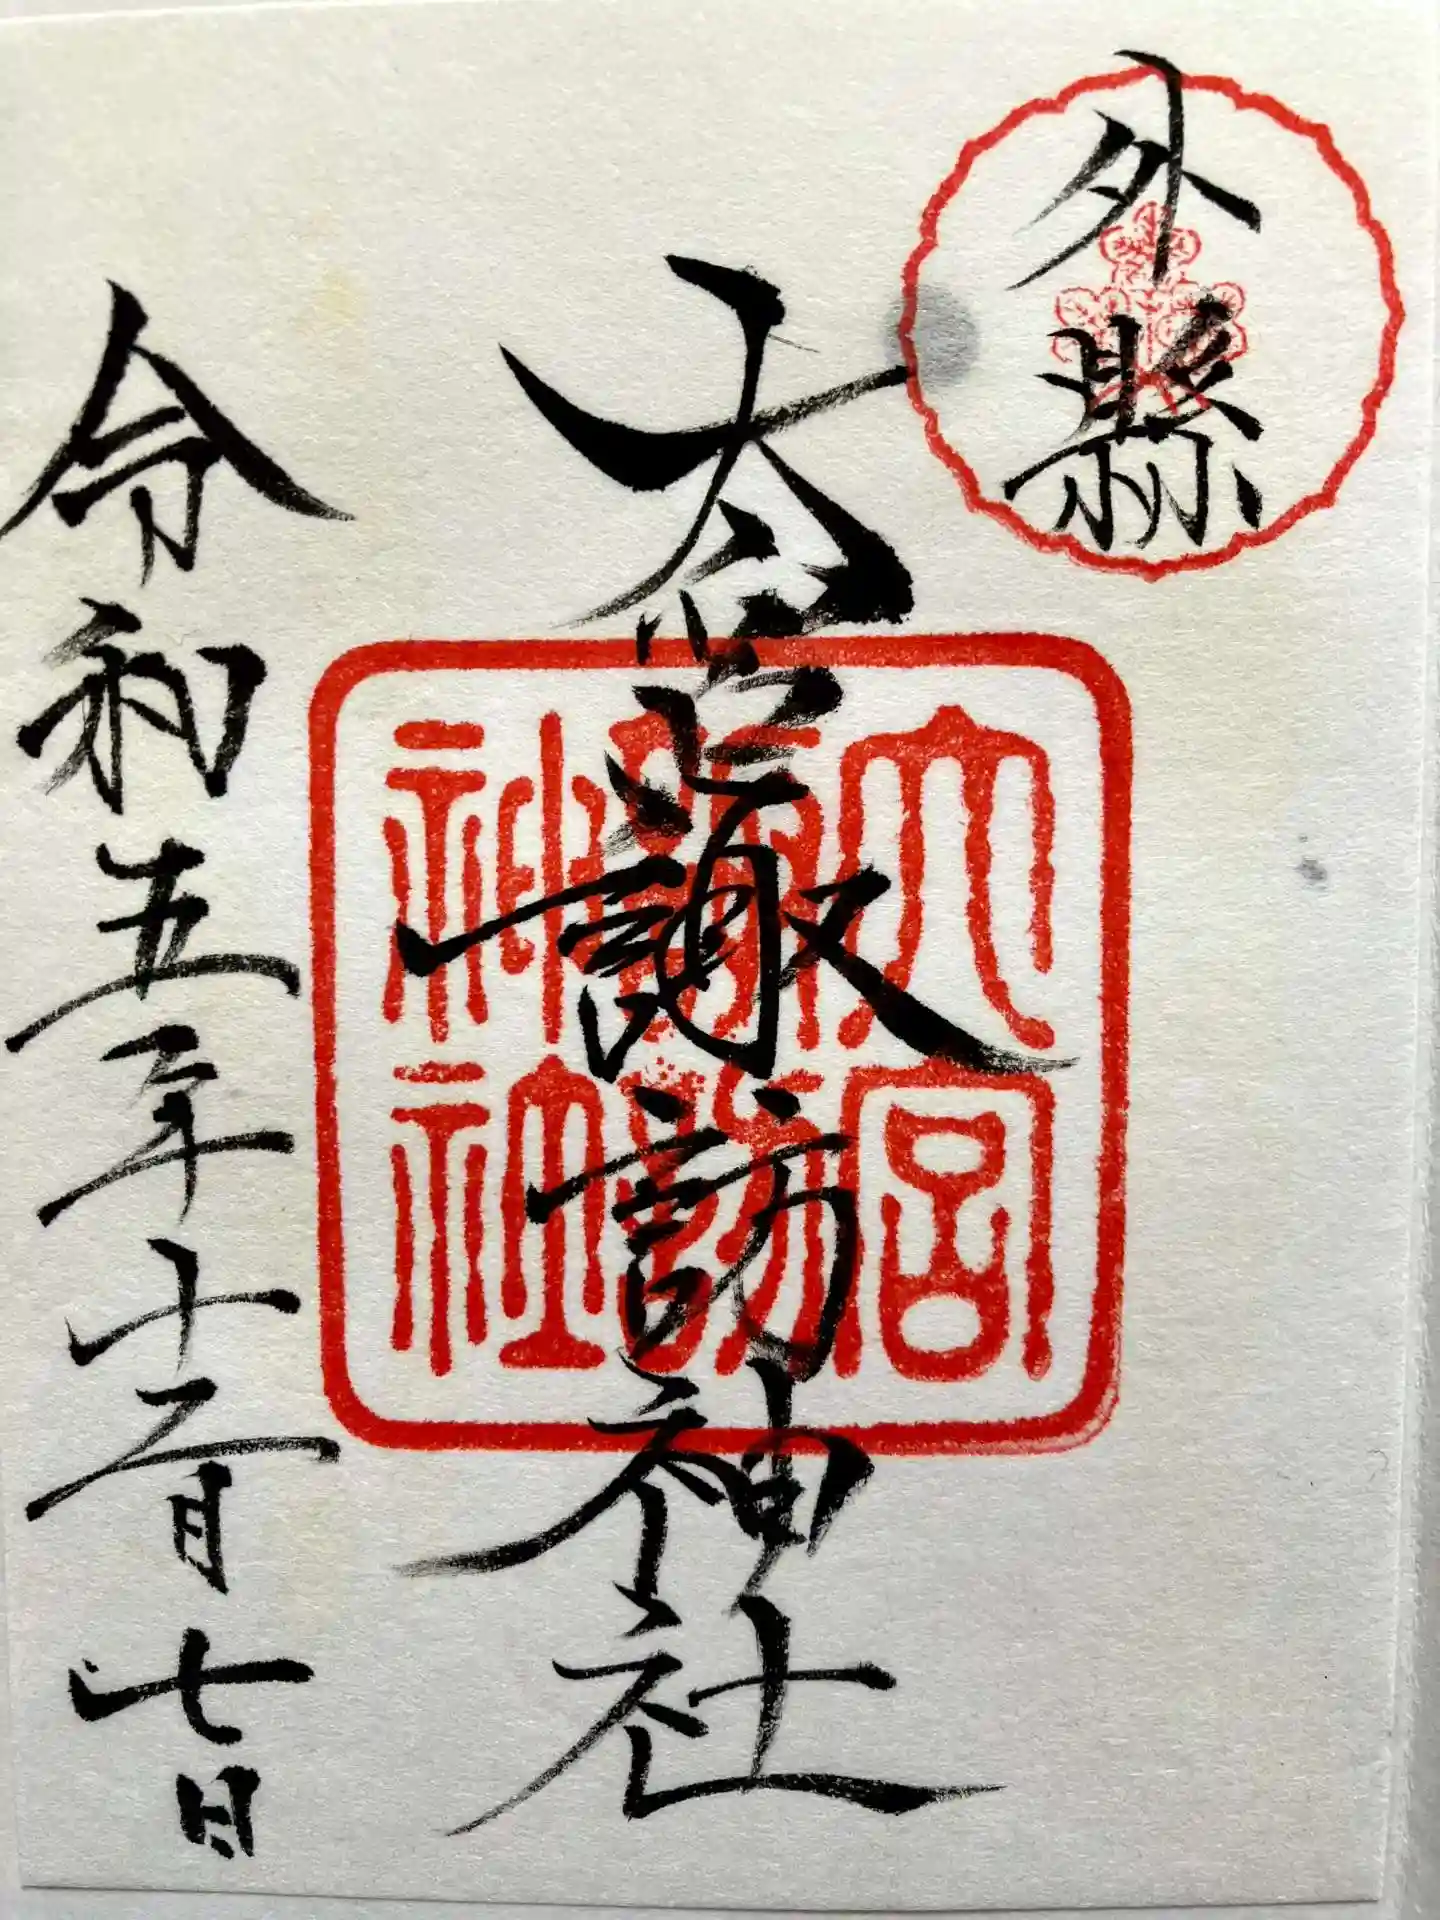 外縣
大宮諏訪神社
大宮
諏訪
神社
令和五年十二月七日